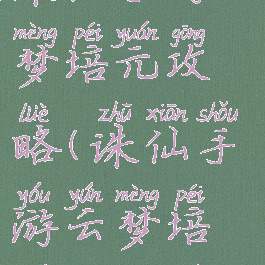 mèng péi yuán gōng
梦培元攻
lüè zhū xiān shǒu
略(诛仙手
yóu yún mèng péi
游云梦培